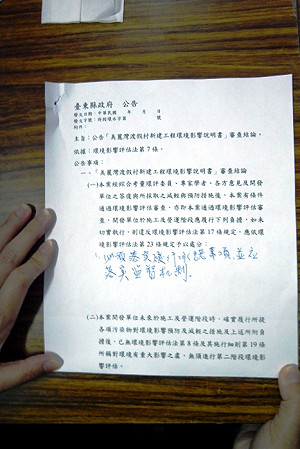 臺東縣政府 公告
發文日期：中華民國 年 月 日
發文字號：府授環水字第 號
附件：
主旨：公告「美麗灣渡假村新建工程環境影響說明書」審查結論。
依據：環境影響評估法第7條。
公告事項：
一、「美麗灣渡假村新建工程環境影響說明書」審查結論
(一)本案經綜合考量環評委員、專家學者、各方意見及開發
單位之答復與所採取之減輕與預防措施後，本案有條件
通過環境影響評估審查，亦即本案通過環境影響評估審
查，開發單位於施工及營運階段應履行下列負擔，如未
切實執行，則違反環境影響評估法第17條規定，應依環
境影響評估法第23條規定予以處分：
必須落實 承諾事項,並應
落實監督機制.
(二)本案開發單位未來於施工及營運階段時，確實履行所提
各項污染物對環境影響預防及減輕之措施及上述所附負
擔後，已無環境影響評估法第8條及其施行細則第19條
所稱對環境有重大影響之虞，無須進行第二階段環境影
響評估。